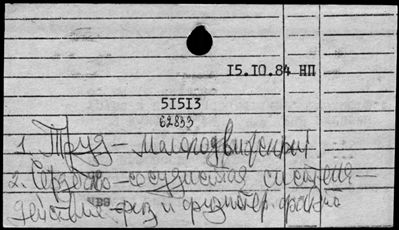 15.10.84 НП
51513
62833
1. Труд - малоподвижный
2. Сердечно-сосудистая система -
действия физ и физиотер. факто